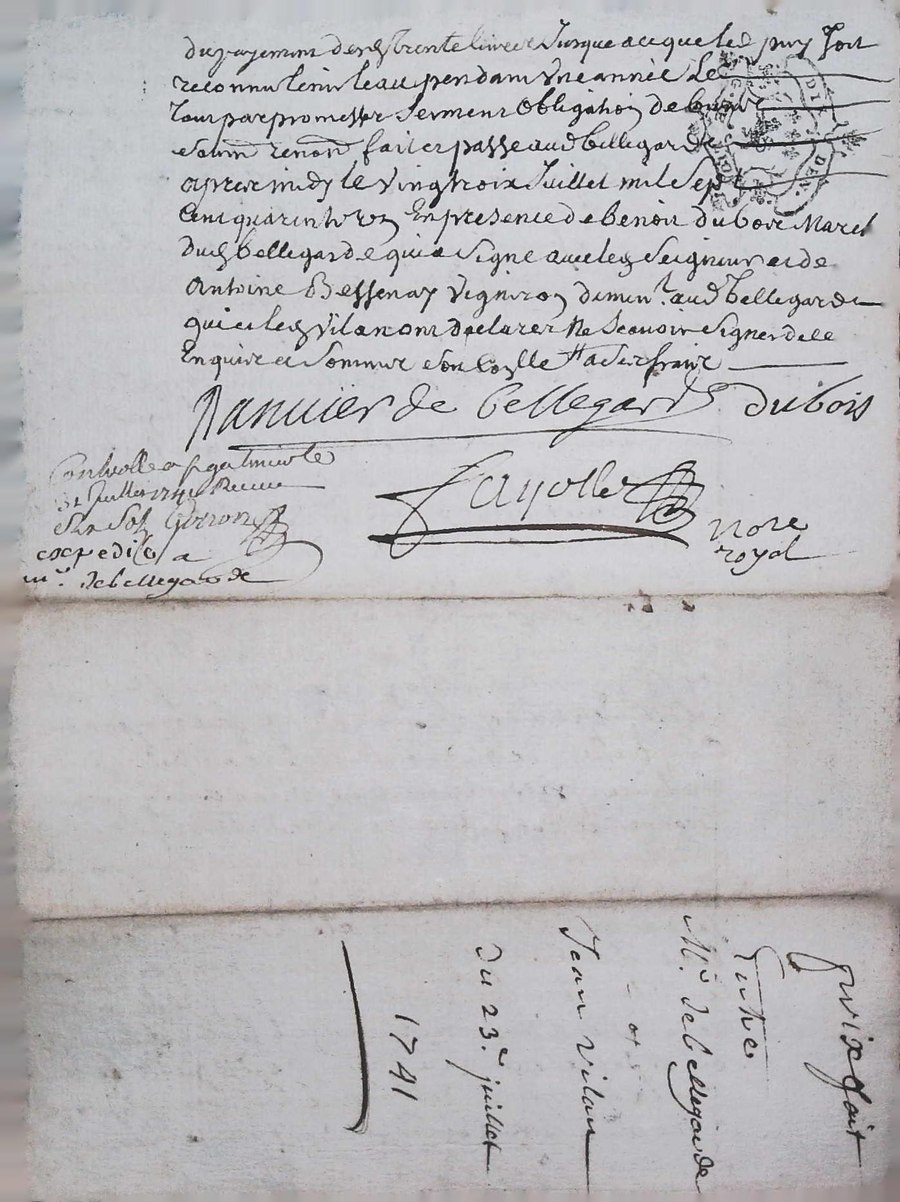 du payement desd trente livres Jusque a ce que led puy soit
reconnu tenir leau pendant Une année Le
tout par promesse serment Obligation de
soum renon fait et passé aud bellegarde
apres midy le vingt troix Juillet mil sept
Cent quarinte Un En presence de benoit dubois March
dud bellegarde qui a signé avec led seigneur et de
Antoine Bessenay Vigniron demeurt aud bellegarde
qui et led vilan ont declarer Ne scavoir signer de ce
Enquis et sommer
Ranvier de bellegarde dubois
Controllé a st galmier le
31 Juillet 1741 Receu
six sol
Fayolle
Nore
royal
expedité a
mr. debellegarde
prix fait
Entre
Mr. debellegarde
et
Jean vilan
du 23e juillet
1741